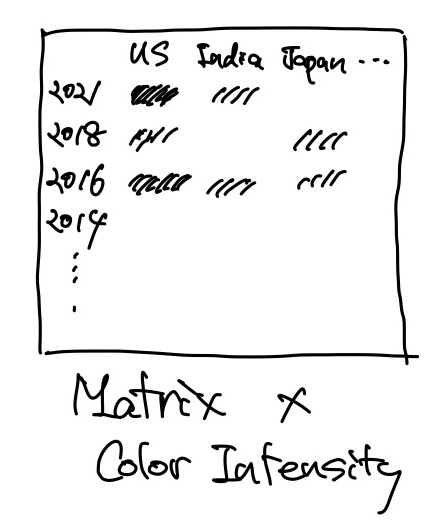 US India Japan ...
2021
2018
2016
2014
Matrix x
Color Intensity